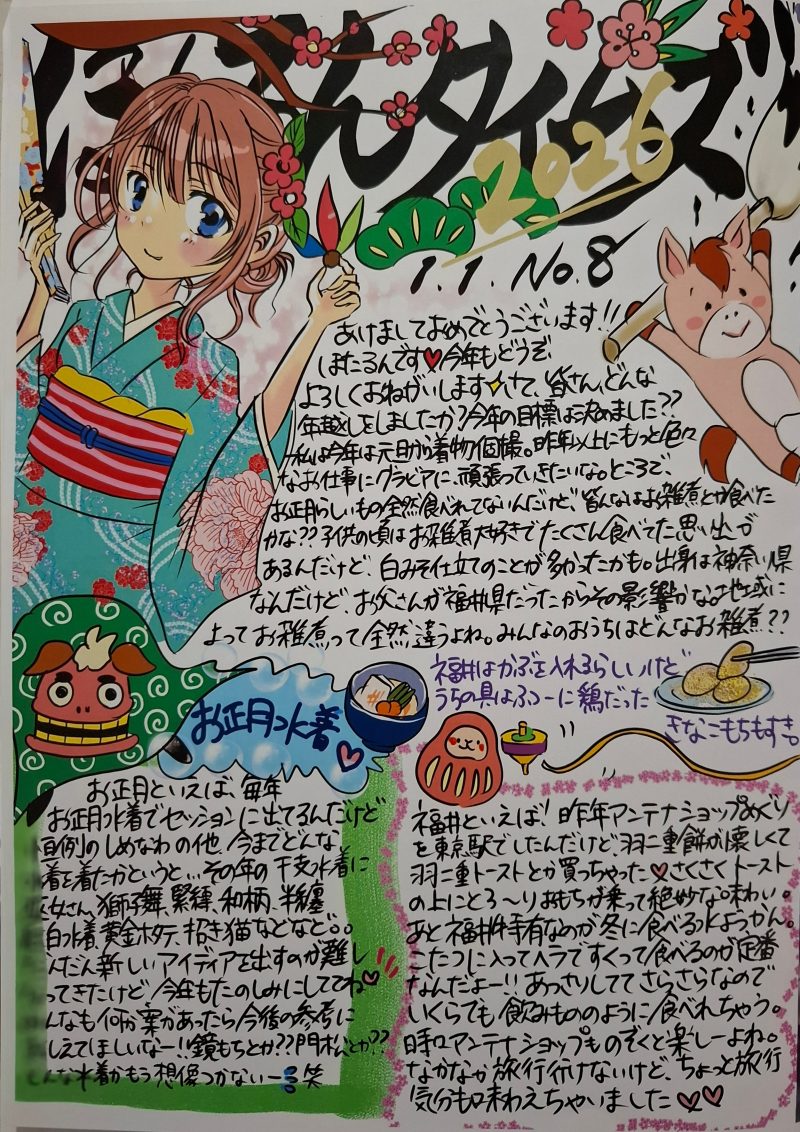 にほさんタイムズ
2026
1.1. No.8
あけましておめでとうございます!!
ほたるんです♥今年もどうぞ
よろしくおねがいします✧さて、皆さん、どんな
年越しをしましたか?今年の目標は決めました??
私は今年は元日から着物個撮。昨年以上にもっと色々
なお仕事にグラビアに、頑張っていきたいな。ところで、
お正月らしいもの全然食べれてないんだけど、皆んなはお雑煮とか食べた
かな??子供の頃はお雑煮大好きでたくさん食べてた思い出が
あるんだけど、白みそ仕立てのことが多かったかも。出身は神奈川県
なんだけど、お父さんが福井県だったからその影響かな。地域に
よってお雑煮って全然違うよね。みんなのおうちはどんなお雑煮??
福井はかぶを入れるらしいけど
うちの具はふつーに鶏だった
きなこもちもすき。
お正月水着♡
お正月といえば、毎年
お正月水着でセッションに出てるんだけど
恒例のしめなわの他、今までどんな
水着を着たかというと…その年の干支水着に
巫女さん、獅子舞、緊縛、和柄、半纏
白水着、黄金ホタテ、招き猫などなど。。
だんだん新しいアイディアを出すのが難し
くなってきたけど今年もたのしみにしててね♡
みんなも何か案があったら今後の参考に
教えてほしいなー!!鏡もちとか??門松とか??
どんな水着かもう想像つかないー笑
福井といえば!昨年アンテナショップめぐり
を東京駅でしたんだけど、羽二重餅が懐しくて
羽二重トーストとか買っちゃった♥さくさくトースト
の上にとろ〜りおもちが乗って絶妙な味わい。
あと福井特有なのが冬に食べる水ようかん。
こたつに入ってヘラですくって食べるのが定番
なんだよー!!あっさりしててさらさらなので
いくらでも飲みもののように食べれちゃう。
時々アンテナショップものぞくと楽しーよね。
なかなか旅行行けないけど、ちょっと旅行
気分も味わえちゃいました♡♡